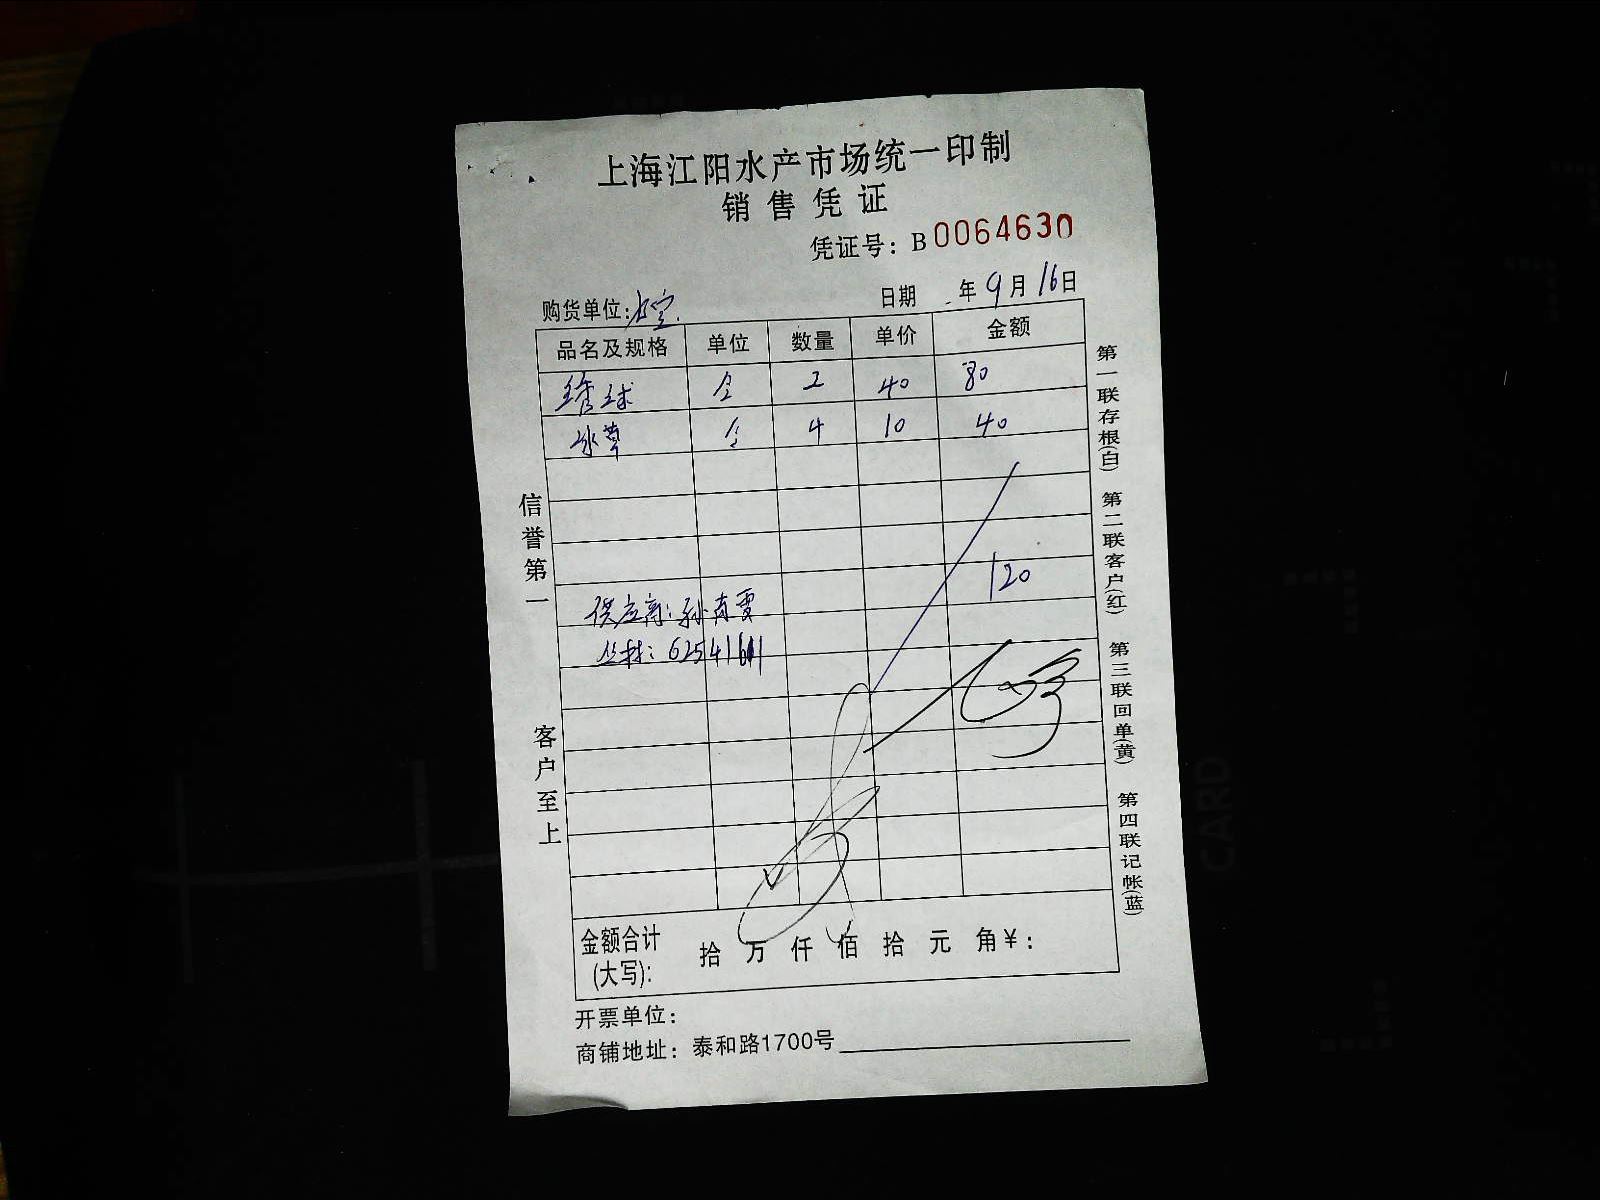 上海江阳水产市场统一印制
销售凭证
凭证号：B 0064630
购货单位：
日期 年 9 月 16 日
品名及规格 单位 数量 单价 金额
绣球 2 40 80
冰草 4 10 40
120
供应商：孙
62541611
金额合计(大写)： 拾 万 仟 佰 拾 元 角 ¥：
开票单位：
商铺地址：泰和路1700号
信誉第一
客户至上
第一联存根(白)
第二联客户(红)
第三联回单(黄)
第四联记帐(蓝)
CARD